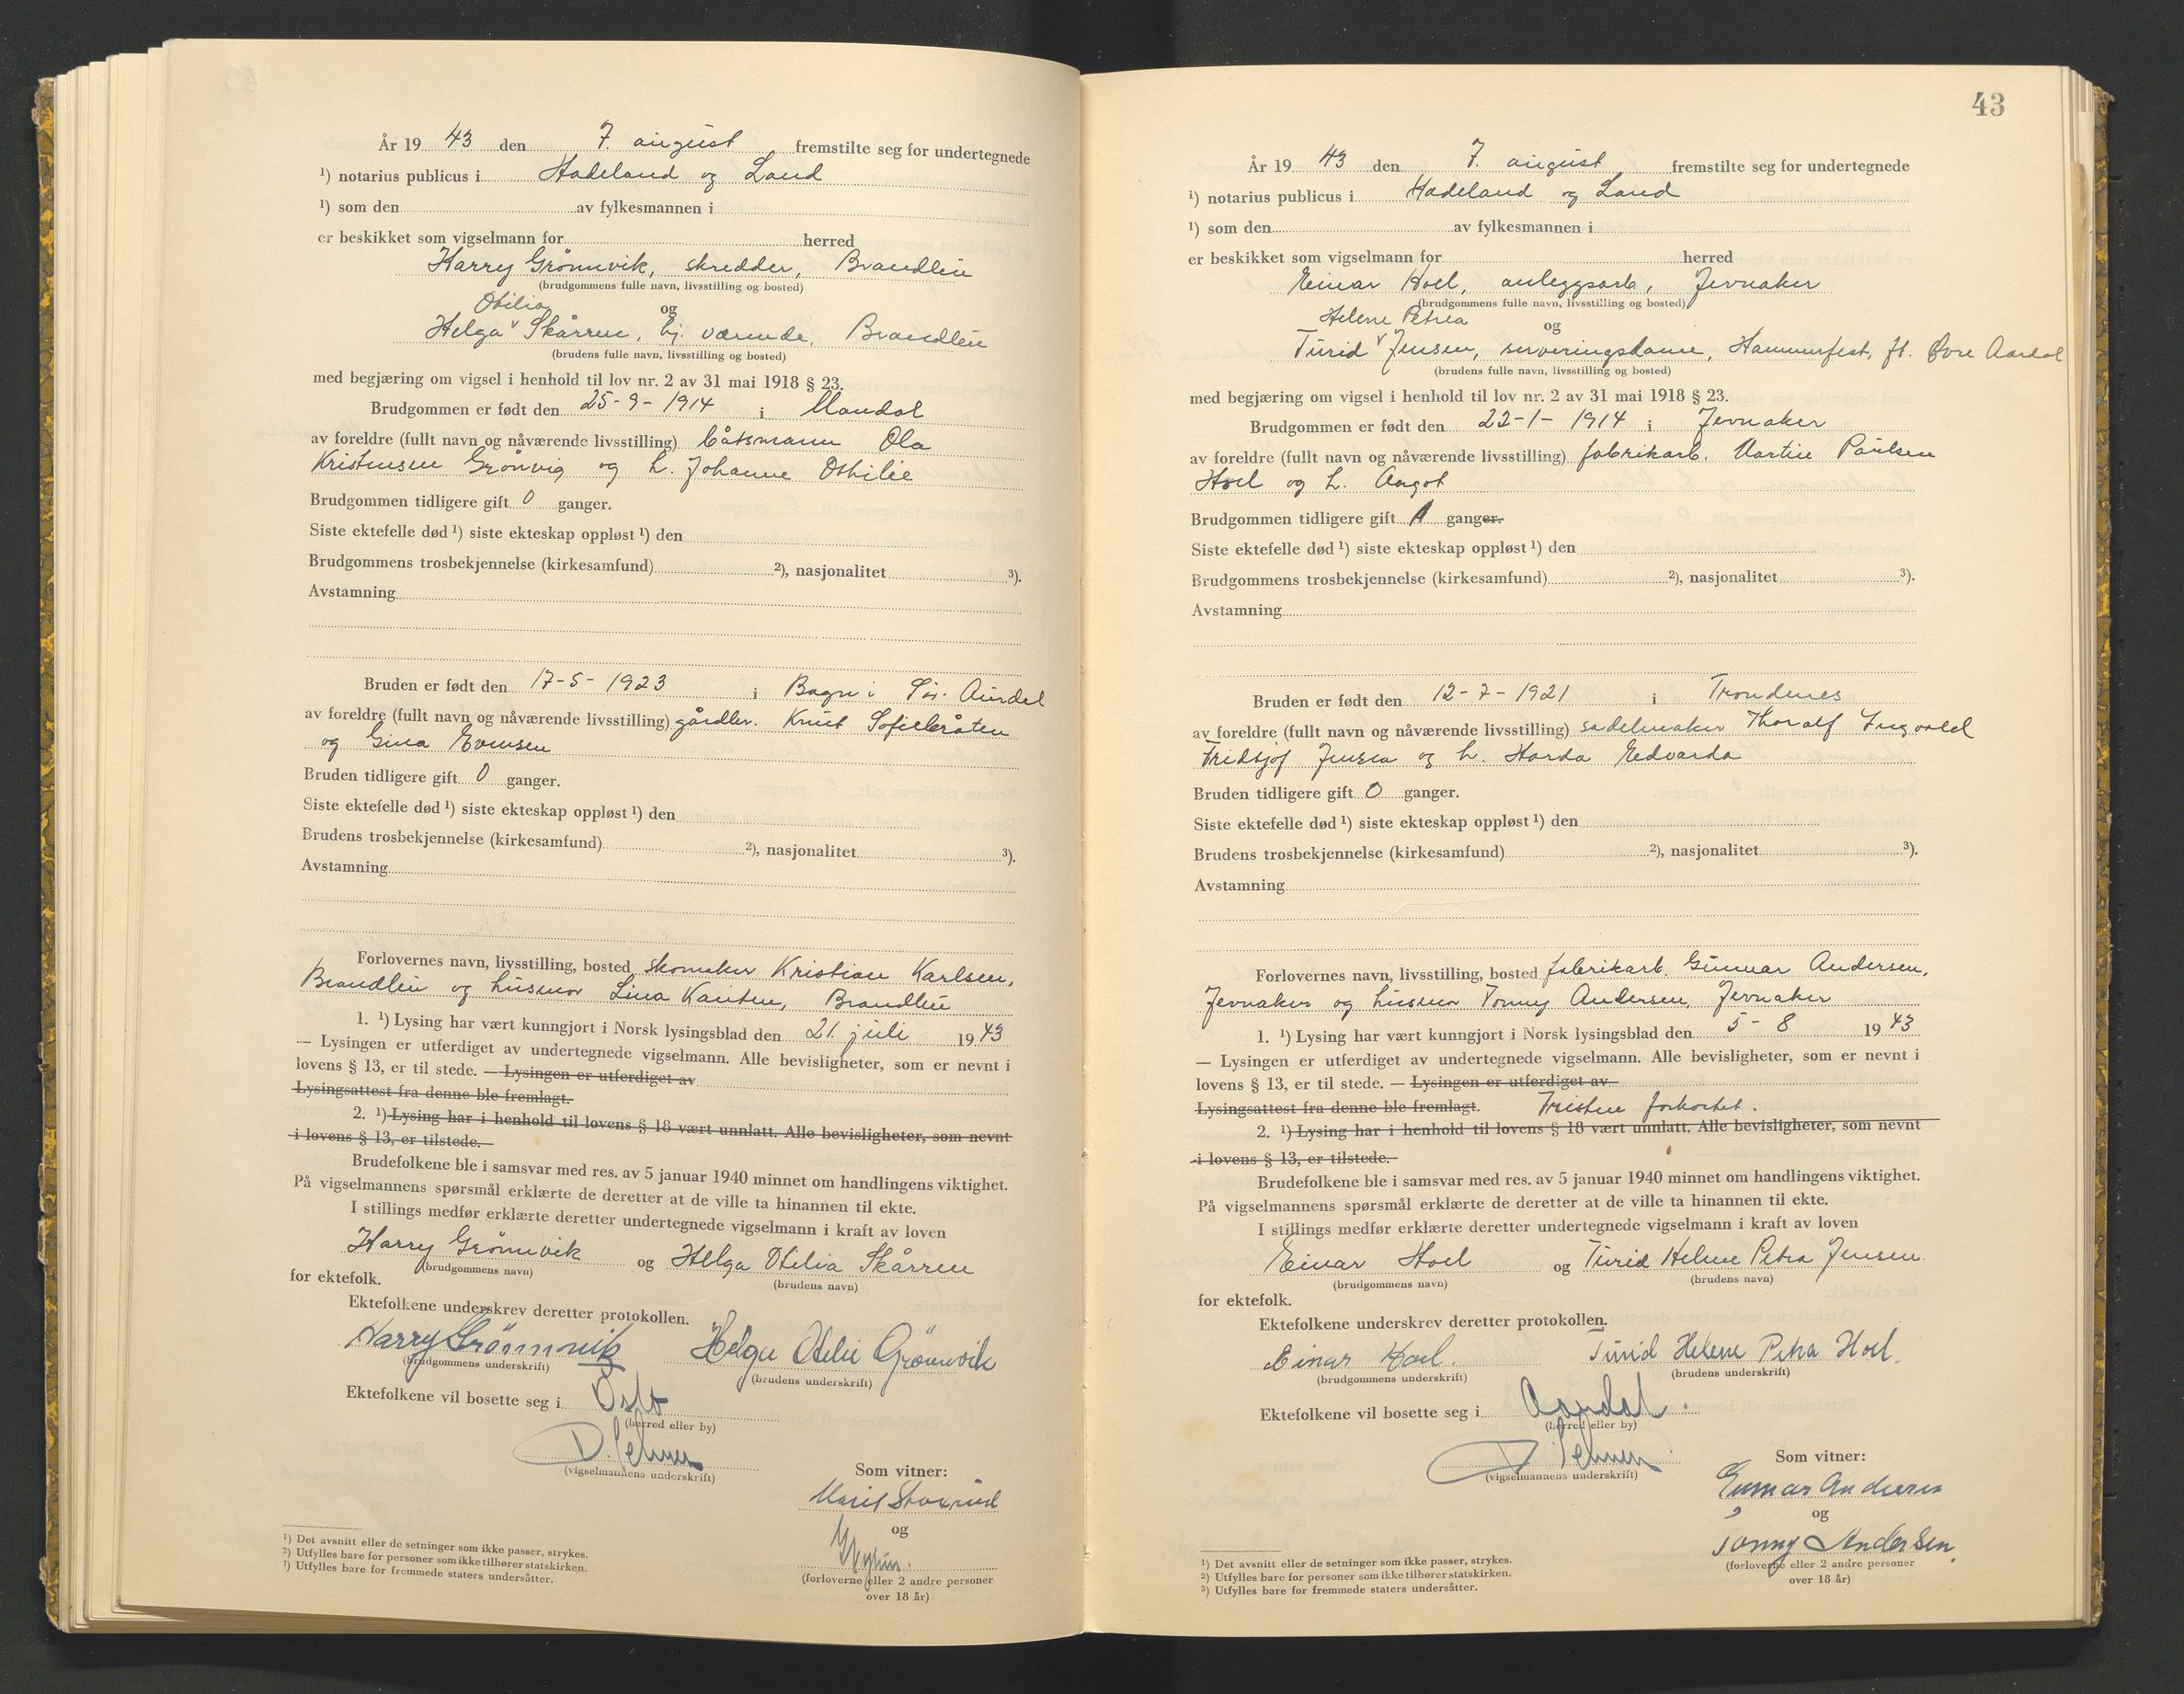 År 19 43 den 7. august fremstilte seg for undertegnede
¹) notarius publicus i Hadeland og Land
¹) som den av fylkesmannen i
er beskikket som vigselmann for herred
Harry Grönnvik, skredder, Brandbu
(brudgommens fulle navn, livsstilling og bosted)
Otilia
og
Helga v Skårren, hj. værende, Brandbu
(brudens fulle navn, livsstilling og bosted)
med begjæring om vigsel i henhold til lov nr. 2 av 31 mai 1918 § 23.
Brudgommen er født den 25-9-1914 i Mandal
av foreldre (fullt navn og nåværende livsstilling) båtsmann Ola
Kristensen Grönvig og h. Johanne Othilie
Brudgommen tidligere gift 0 ganger.
Siste ektefelle død ¹) siste ekteskap oppløst ¹) den
Brudgommens trosbekjennelse (kirkesamfund) ²), nasjonalitet ³).
Avstamning
Bruden er født den 17-5-1923 i Bagn i Sør-Aurdal
av foreldre (fullt navn og nåværende livsstilling) gårdbr. Knut Sofiebråten
og Gina Evensen
Bruden tidligere gift 0 ganger.
Siste ektefelle død ¹) siste ekteskap oppløst ¹) den
Brudens trosbekjennelse (kirkesamfund) ²), nasjonalitet ³).
Avstamning
Forlovernes navn, livsstilling, bosted skomaker Kristian Karlsen,
Brandbu og husmor Lina Brandbu
1. ¹) Lysing har vært kunngjort i Norsk lysingsblad den 21. juli 19 43
— Lysingen er utferdiget av undertegnede vigselmann. Alle bevisligheter, som er nevnt i
lovens § 13, er til stede. — Lysingen er utferdiget av
Lysingsattest fra denne ble fremlagt.
2. ¹) Lysing har i henhold til lovens § 18 vært unnlatt. Alle bevisligheter, som nevnt
i lovens § 13, er tilstede. —
Brudefolkene ble i samsvar med res. av 5 januar 1940 minnet om handlingens viktighet.
På vigselmannens spørsmål erklærte de deretter at de ville ta hinannen til ekte.
I stillings medfør erklærte deretter undertegnede vigselmann i kraft av loven
Harry Grönnvik og Helga Otilia Skårren
(brudgommens navn) (brudens navn)
for ektefolk.
Ektefolkene underskrev deretter protokollen.
Harry Grönnvik Helga Otilie Grönnvik
(brudgommens underskrift) (brudens underskrift)
Ektefolkene vil bosette seg i Oslo
(herred eller by)
(vigselmannens underskrift)
Som vitner:
Marit
og
(forloverne eller 2 andre personer
over 18 år)
¹) Det avsnitt eller de setninger som ikke passer, strykes.
²) Utfylles bare for personer som ikke tilhører statskirken.
³) Utfylles bare for fremmede staters undersåtter.
43
År 19 43 den 7. august fremstilte seg for undertegnede
¹) notarius publicus i Hadeland og Land
¹) som den av fylkesmannen i
er beskikket som vigselmann for herred
Einar Hoel, anleggsarb., Jevnaker
(brudgommens fulle navn, livsstilling og bosted)
Helene Petrea
og
Turid v Jensen, serveringsdame, Hammerfest, ft. Øvre Aardal
(brudens fulle navn, livsstilling og bosted)
med begjæring om vigsel i henhold til lov nr. 2 av 31 mai 1918 § 23.
Brudgommen er født den 22-1-1914 i Jevnaker
av foreldre (fullt navn og nåværende livsstilling) fabrikarb. Martin Paulsen
Hoel og h. Aagot
Brudgommen tidligere gift 1 ganger.
Siste ektefelle død ¹) siste ekteskap oppløst ¹) den
Brudgommens trosbekjennelse (kirkesamfund) ²), nasjonalitet ³).
Avstamning
Bruden er født den 12-7-1921 i Trondenes
av foreldre (fullt navn og nåværende livsstilling) sadelmaker Thoralf Ingvald
Fridtjof Jensen og h. Harda Edvarda
Bruden tidligere gift 0 ganger.
Siste ektefelle død ¹) siste ekteskap oppløst ¹) den
Brudens trosbekjennelse (kirkesamfund) ²), nasjonalitet ³).
Avstamning
Forlovernes navn, livsstilling, bosted fabrikarb. Gunnar Andersen,
Jevnaker og husmor Tonny Andersen, Jevnaker
1. ¹) Lysing har vært kunngjort i Norsk lysingsblad den 5-8 19 43
— Lysingen er utferdiget av undertegnede vigselmann. Alle bevisligheter, som er nevnt i
lovens § 13, er til stede. — Lysingen er utferdiget av
Lysingsattest fra denne ble fremlagt. Fristen forkortet.
2. ¹) Lysing har i henhold til lovens § 18 vært unnlatt. Alle bevisligheter, som nevnt
i lovens § 13, er tilstede. —
Brudefolkene ble i samsvar med res. av 5 januar 1940 minnet om handlingens viktighet.
På vigselmannens spørsmål erklærte de deretter at de ville ta hinannen til ekte.
I stillings medfør erklærte deretter undertegnede vigselmann i kraft av loven
Einar Hoel og Turid Helene Petra Jensen
(brudgommens navn) (brudens navn)
for ektefolk.
Ektefolkene underskrev deretter protokollen.
Einar Hoel. Turid Helene Petra Hoel.
(brudgommens underskrift) (brudens underskrift)
Ektefolkene vil bosette seg i Aardal.
(herred eller by)
(vigselmannens underskrift)
Som vitner:
Gunnar Andersen
og
Tonny Andersen.
(forloverne eller 2 andre personer
over 18 år)
¹) Det avsnitt eller de setninger som ikke passer, strykes.
²) Utfylles bare for personer som ikke tilhører statskirken.
³) Utfylles bare for fremmede staters undersåtter.